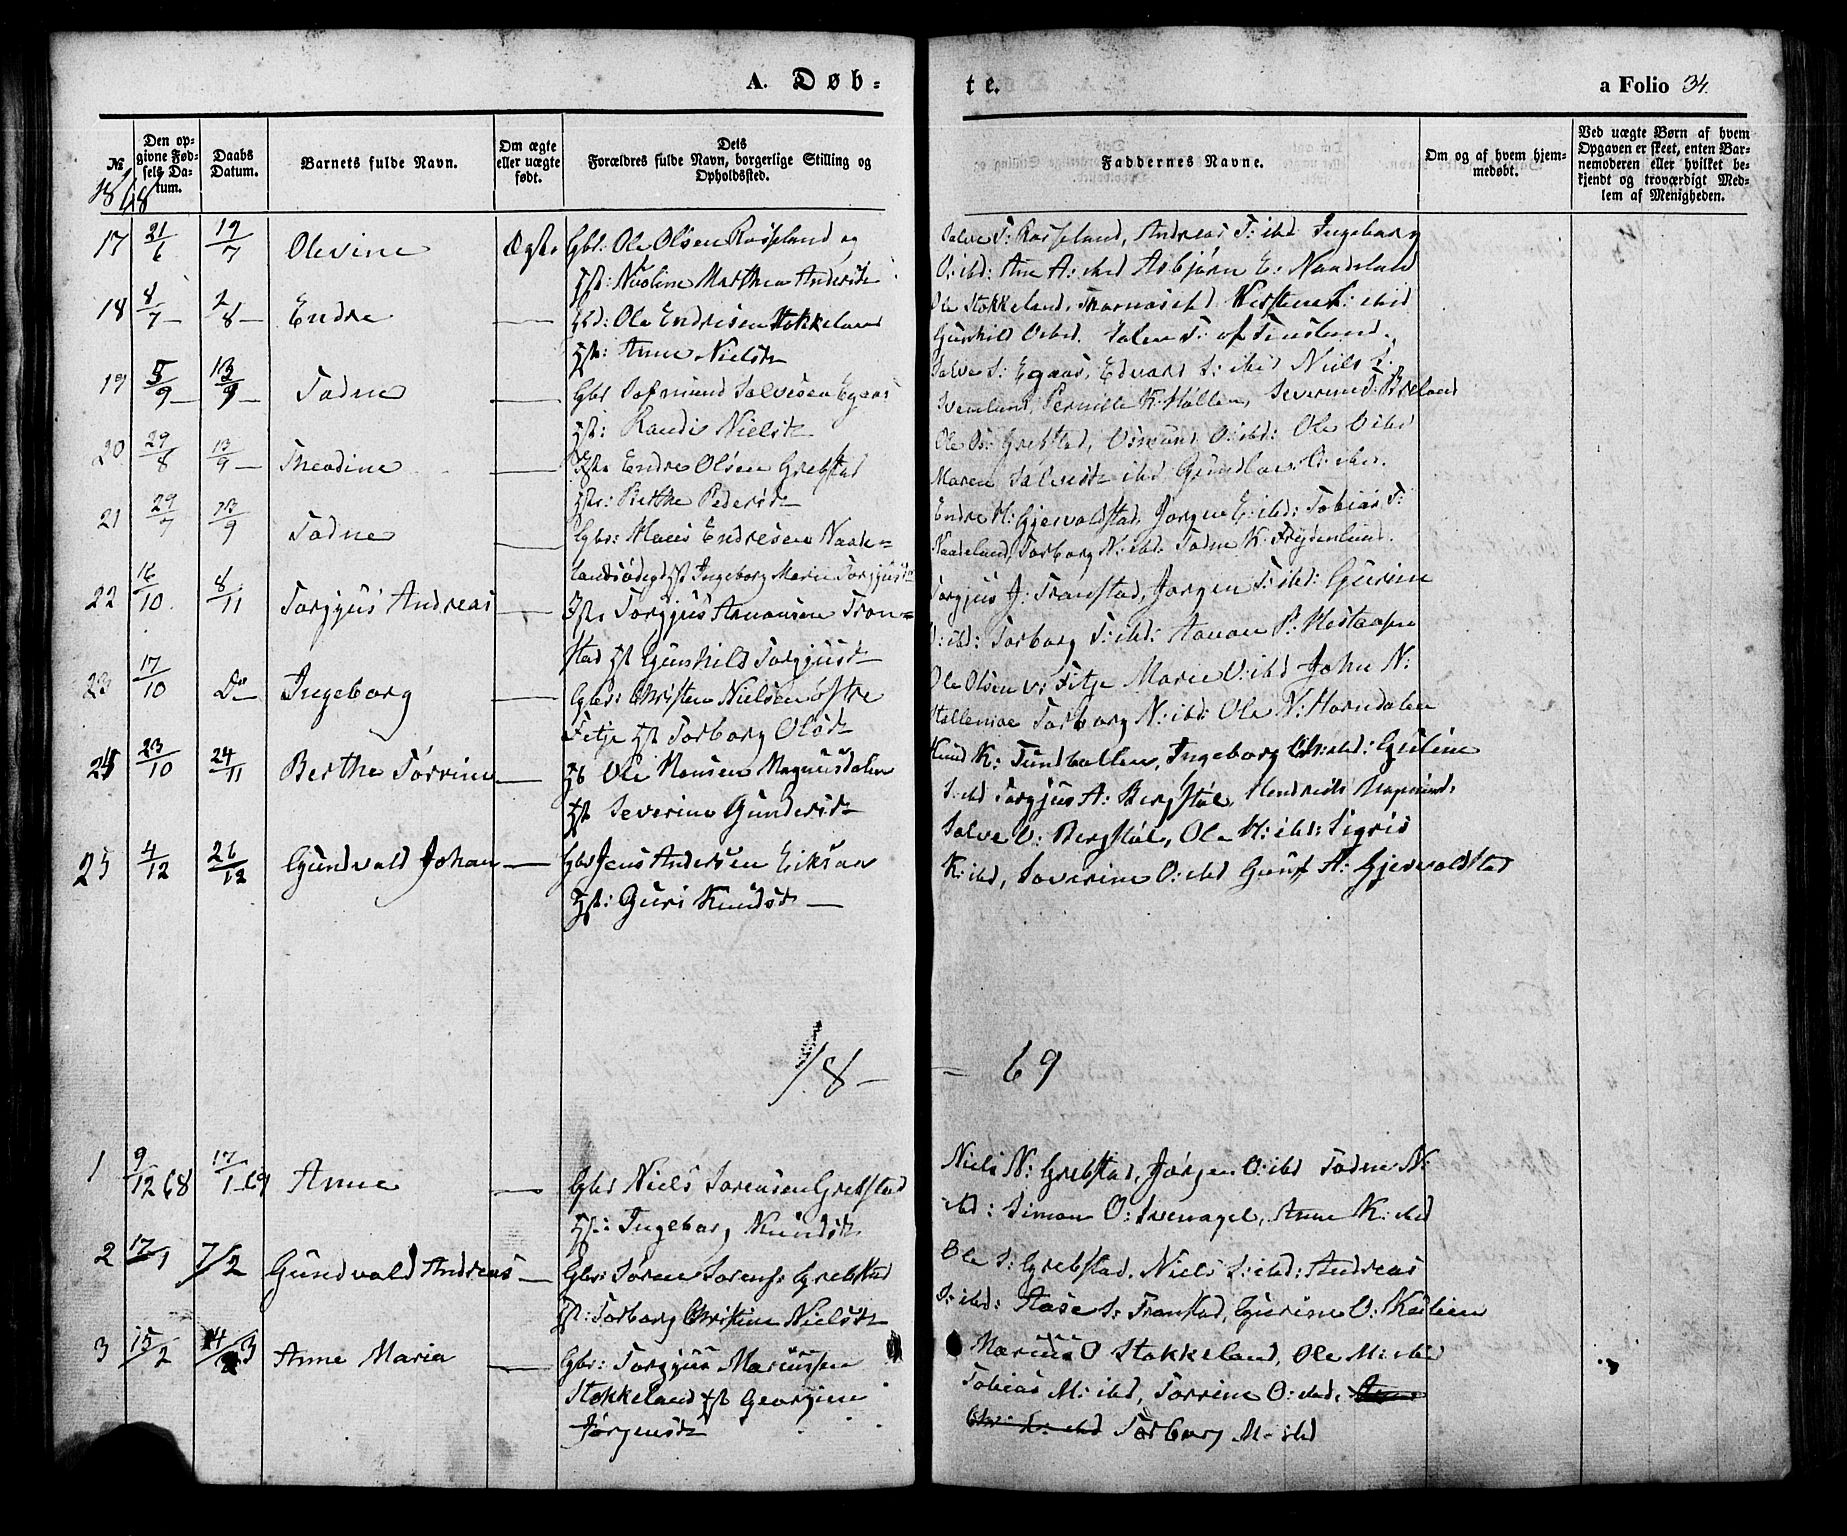 A. Døb-
te.
a Folio 34.
№
Den op-
givne Fød-
sels Da-
tum.
Daabs
Datum.
Barnets fulde Navn.
Om ægte
eller uægte
født.
Dets
Forældres fulde Navn, borgerlige Stilling og
Opholdssted.
Faddernes Navne.
Om og af hvem hjem-
medøbt.
Ved uægte Børn af hvem
Opgaven er skeet, enten Bar-
nemoderen eller hvilket be-
kjendt og troværdigt Med-
lem af Menigheden.
1868
17 21/6 19/7 Olevine Ægte Gbr: Ole Olsen Rosseland og
Hst: Nicoline Marthea Andersdt
Salve T: Rosseland, Andreas T: ibd Ingeborg
O: ibd: Ane A: ibd Asbjørn E: Naadeland
18 8/7 – 2/8 – Endre — Gbr: Ole Endresen Stokkeland
Hst: Anne Nielsdt
Ole Stokkeland, ibd
Gunhild O ibd.
19 5/9 – 13/9 – Todne — Gbr Salvesen Egaas
Hst: Randi Nielsdt
Salve S: Egaas, Edvard S: ibd Niels S:
Pernille K: Breland
20 29/8 13/9 – Theodine — Endre Olsen Grebstad
Hst: Berthe Pedersdt
Ole Os: Grebstad, Osmund O: ibd: Ole O ibd
Maren Salvesdt ibd
21 29/7 13/9 Todne — Gbr: Mons Endresen Naade-
landsødegd Hst Ingeborg Marie Torgjusdt
Endre H: Gjervoldstad, Jørgen E: ibd: Tobias T:
Naadeland, Torborg N: ibd. Todne K: Frydenlund.
22 16/10. 8/11 Torgjus Andreas — Torgjus Aanonsen Tron-
stad Hst Gunhild Torgjusdt
Torgjus J: Tronstad, Jørgen T: ibd: Gurine
O: ibd: Torborg T: ibd: Aanon P:
23 17/10 Do – Ingeborg — Gbr: Christen Nielsen østre
Fitje Hst Torborg Olsdt
Ole Olsen v: Fitje Marie O: ibd John N:
Torborg N: ibd: Ole N: Horndalen
24 23/10 24/11 Berthe Torrine — Ole Monsen Magnusdalen
Hst Severine Gundersdt
Knud K: Ingeborg ibd: Guline
S: ibd Torgjus A: Bergstøl, Hendrik
25 4/12 26/12 Gundvald Johan — Gbr Jens Andersen Eiksaa
Hst: Guri Knudsdt —
Salve O: Bergstøl, Ole K: ibd: Sigris
K: ibd, Severine O: ibd A: Gjervoldstad
18 – – 69
1 9/12 68 17/1 69 Anne — Gbr Niels Sørensen Grebstad
Hst: Ingeborg Knudsdt
Niels N: Grebstad, Jørgen O: ibd Todne N:
ibd: Simon O: Anne K: ibd
2 17/1 7/2 Gundvald Andreas — Gbr: Søren Sørens: Grebstad
Hst: Torborg Christine Nielsdt
Ole S: Grebstad. Niels S: ibd: Andreas
S: ibd: Aase S: Tronstad, Gurine O:
3 15/2 14/3 Anne Maria — Gbr: Torgjus Marcussen
Stokkeland Hst Georgine
Jørgensdt
Marcus O Stokkeland, Ole M: ibd
Tobias M: ibd, Torrine O: ibd.
Torborg M: ibd